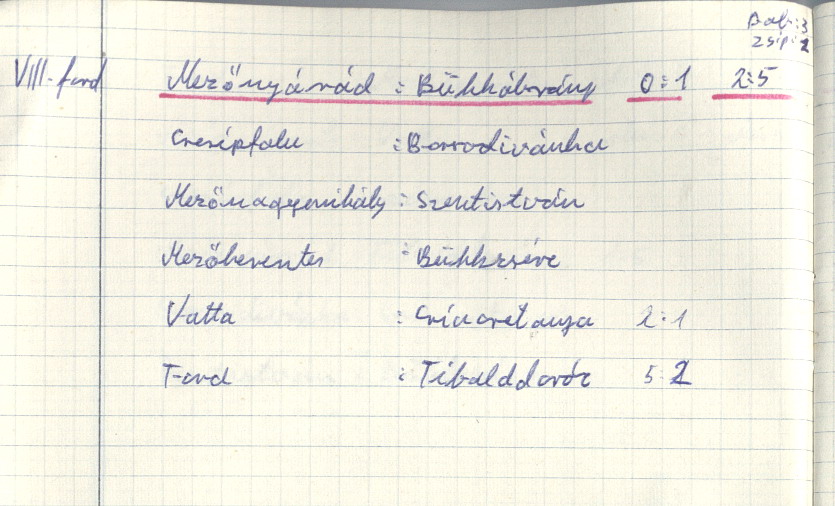 Bab: 3
Zsip: 2
VIII. ford Mezőnyárád : Bükkábrány 0:1 2:5
Cserépfalu : Borsodivánka
Mezőnagymihály : Szentistván
Mezőkeresztes : Bükkzsérc
Vatta : Csincsetanya 2:1
Tard : Tibolddaróc 5:2